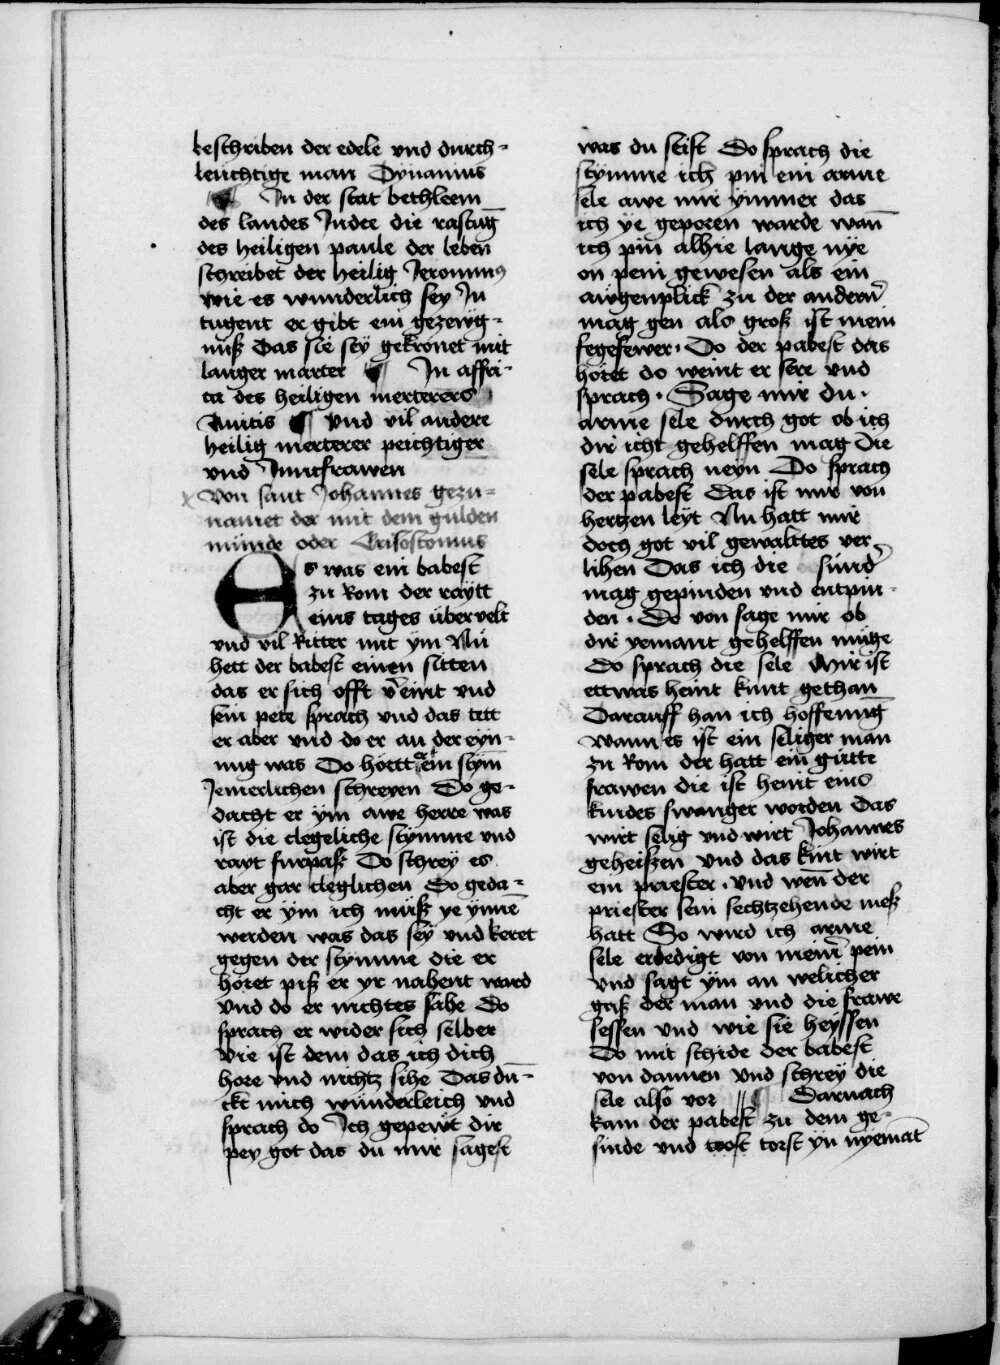 beschriben der edele vnd durch-
leuchtige man Dynamius
¶ In der stat bethleem
des landes Judee die rastūg
des heiligen paule der leben
schreibet der heilig Jeronimus
wie es wunderlich sey In
tugent er gibt ein gezewg-
nuß Das sie sey gekronet mit
langer marter ¶ In affri-
ca des heiligen merterers
Auitis ¶ Vnd vil andere
heilig merterer peichtiger
vnd Junckfrawen
Von sant Johannes gezu-
namet der mit dem gulden
munde oder Crisostomus
Es was ein babest
zu Rom der raytt
eins tages übervelt
vnd vil Ritter mit ym Nu
hett der babest einen sitten
das er sich offt v̄eint vnd
sein pete sprach vnd das tett
er aber vnd do er an der eyn-
ung was Do hortt er ein stym̄
Jemerlichen schreyen Do ge-
dacht er ym awe herre was
ist die clegeliche stymme vnd
rayt furpaß Do schrey es
aber gar cleglichen Do geda-
cht er ym ich muß ye ynnē
werden was das sey vnd keret
gegen der stymme die er
horet piß er yr nahent ward
Vnd do er nichtes sahe Do
sprach er wider sich selber
Wie ist dem das ich dich
hore vnd nichtz sihe Das du-
ckt mich wunderleich vnd
sprach do Ich gepewt dir
pey got das du mir sagest
was du seist Do sprach die
stymme ich pin ein arme
sele awe mir ymmer das
ich ye geporen warde wan̄
ich pin alhie lange nye
on pein gewesen als ein
awgenplick zu der andern̄
mag gen also groß ist mein
fegefewer. Do der pabest das
horet do weint er sere vnd
sprach. Sage mir du.
arme sele durch got ob ich
dir icht gehelffen mag Die
sele sprach neyn Do sprach
der pabest Das ist mir von
hertzen leyt Nu hatt mir
doch got vil gewalttes ver
lihen Das ich die sünd̄
mag gepinden vnd entpin-
den. Do von sage mir ob
dir yemant gehelffen muge
Do sprach die sele Mir ist
ettwas heint kunt gethan
Darauff han ich hoffenūg
Wann es ist ein seliger man
zu Rom der hatt ein gutte
frawen die ist heint eins
kindes swanger worden Das
wirt selig vnd wirt Johannes
geheißen Vnd das kint wirt
ein priester. Vnd wen̄ der
priester sein sechtzehende meß
hatt So wird ich arme
sele erledigt von mein̄ pein
Vnd sagt ym an welicher
gaß der man vnd die frawe
sessen vnd wie sie heyssen
Do mit schide der babest
von dannen Vnd schrey die
sele also vor ¶ Darnach
kam der pabest zu dem ge-
sinde vnd torst yn nyemāt